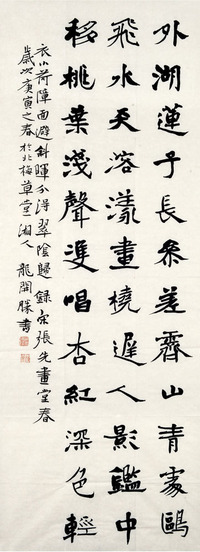 外湖蓮子長參差霽山青處鷗
飛水天溶漾畫橈遲人影鑑中
移桃葉淺聲雙唱杏紅深色輕
衣小荷障面避斜暉分得翠陰歸錄宋張先畫堂春
歲次庚寅之春於北梅草堂湘人龍開勝書